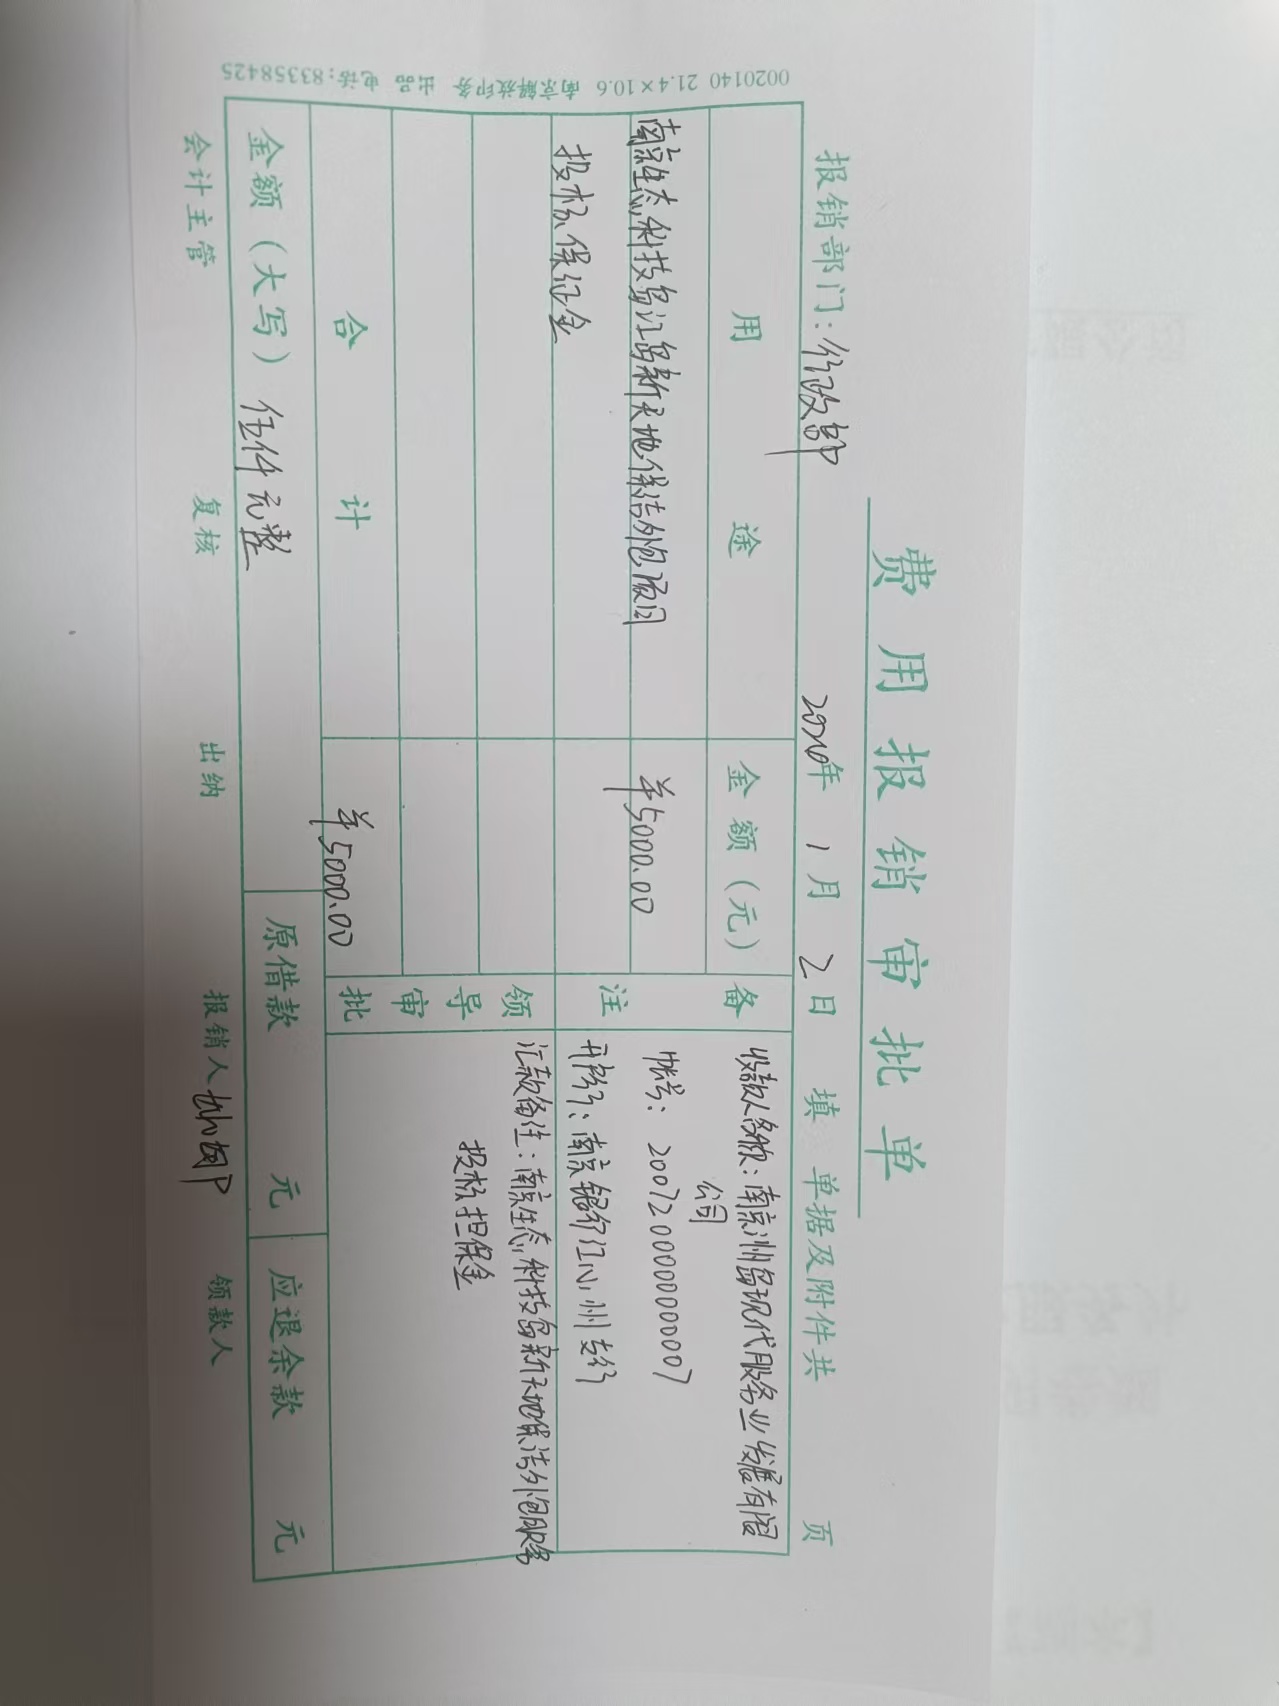 费用报销审批单
报销部门：行政部 2020年1月2日填 单据及附件共 页
用途 金额（元） 备注
南京生态科技岛江岛新天地保洁外包项目 ¥5000.00
投标保证金
收款人名称：南京洲岛现代服务业发展有限
公司
帐号：20072000000000007
开户行：南京银行江心洲支行
领导审批
汇款备注：南京生态科技岛新天地保洁外包服务
投标担保金
合计 ¥5000.00
金额（大写）伍仟元整 原借款 元 应退余款 元
会计主管 复核 出纳 报销人 领款人
0020140 21.4×10.6 南京解放印务 出品 电话：83358425